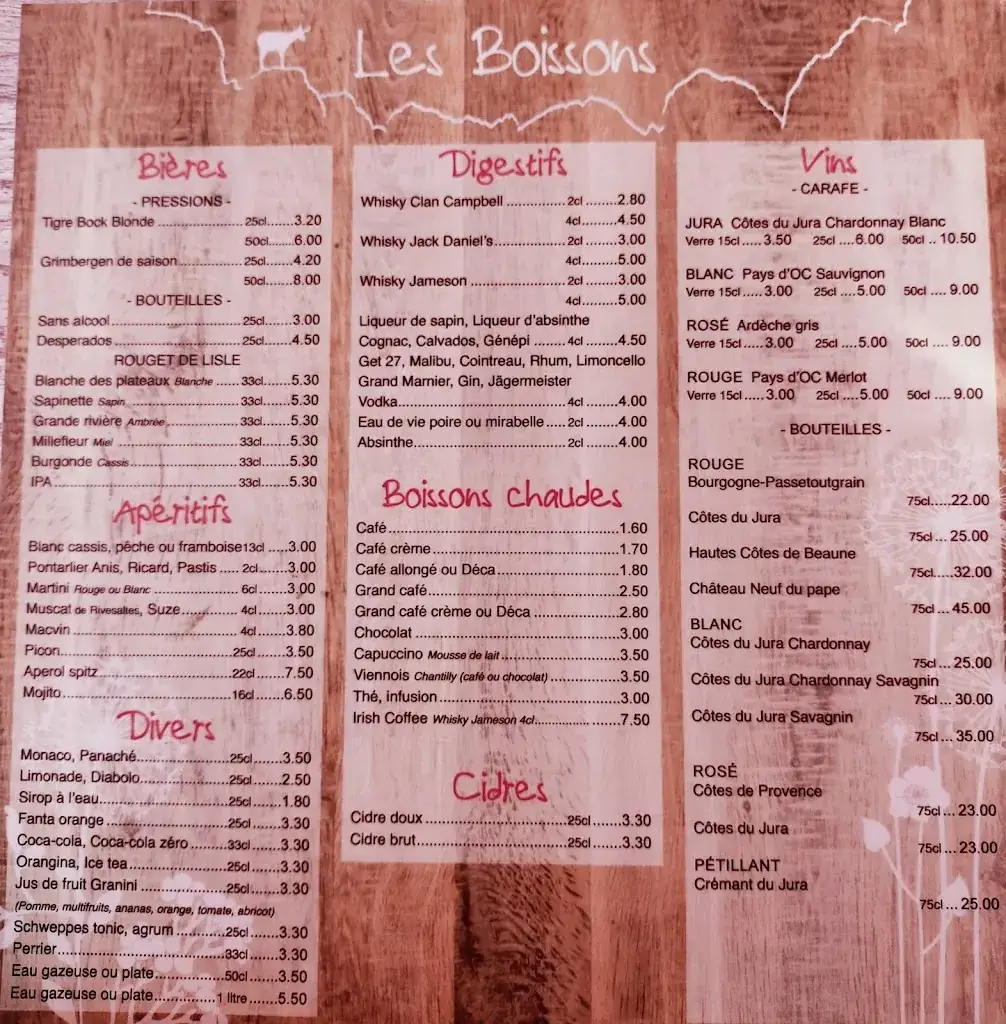 Les Boissons
Bières
- PRESSIONS -
Tigre Bock Blonde ........ 25cl.......3.20
50cl.......6.00
Grimbergen de saison........ 25cl.......4.20
50cl.......8.00
- BOUTEILLES -
Sans alcool........25cl.......3.00
Desperados........25cl.......4.50
ROUGET DE LISLE
Blanche des plateaux Blanche ...... 33cl.......5.30
Sapinette Sapin ........33cl.......5.30
Grande rivière Ambrée........33cl.......5.30
Millefleur Miel ........33cl.......5.30
Burgonde Cassis........33cl.......5.30
IPA........33cl.......5.30
Apéritifs
Blanc cassis, pêche ou framboise13cl .....3.00
Pontarlier Anis, Ricard, Pastis ..... 2cl.......3.00
Martini Rouge ou Blanc ........ 6cl.......3.00
Muscat de Rivesaltes, Suze........ 4cl.......3.00
Macvin ........ 4cl.......3.80
Picon........25cl.......3.50
Aperol spitz........22cl.......7.50
Mojito........16cl.......6.50
Divers
Monaco, Panaché........25cl.......3.50
Limonade, Diabolo........25cl.......2.50
Sirop à l'eau........25cl.......1.80
Fanta orange ........25cl.......3.30
Coca-cola, Coca-cola zéro ........33cl.......3.30
Orangina, Ice tea........25cl.......3.30
Jus de fruit Granini ........25cl.......3.30
(Pomme, multifruits, ananas, orange, tomate, abricot)
Schweppes tonic, agrum ........25cl.......3.30
Perrier........33cl.......3.30
Eau gazeuse ou plate........50cl.......3.50
Eau gazeuse ou plate........1 litre.......5.50
Digestifs
Whisky Clan Campbell ........ 2cl ........2.80
4cl........4.50
Whisky Jack Daniel's........2cl ........3.00
4cl........5.00
Whisky Jameson ........2cl ........3.00
4cl........5.00
Liqueur de sapin, Liqueur d'absinthe
Cognac, Calvados, Génépi ....... 4cl ........4.50
Get 27, Malibu, Cointreau, Rhum, Limoncello
Grand Marnier, Gin, Jägermeister
Vodka........4cl........4.00
Eau de vie poire ou mirabelle.....2cl ........4.00
Absinthe........2cl ........4.00
Boissons chaudes
Café........1.60
Café crème........1.70
Café allongé ou Déca ........1.80
Grand café........2.50
Grand café crème ou Déca ........2.80
Chocolat ........3.00
Capuccino Mousse de lait ........3.50
Viennois Chantilly (café ou chocolat) ........3.50
Thé, infusion........3.00
Irish Coffee Whisky Jameson 4cl........7.50
Cidres
Cidre doux ........25cl........3.30
Cidre brut........25cl........3.30
Vins
- CARAFE -
JURA Côtes du Jura Chardonnay Blanc
Verre 15cl .....3.50 25cl ....6.00 50cl .. 10.50
BLANC Pays d'OC Sauvignon
Verre 15cl .....3.00 25cl ....5.00 50cl .... 9.00
ROSÉ Ardèche gris
Verre 15cl.....3.00 25cl ....5.00 50cl .... 9.00
ROUGE Pays d'OC Merlot
Verre 15cl.....3.00 25cl ....5.00 50cl .... 9.00
- BOUTEILLES -
ROUGE
Bourgogne-Passetoutgrain
75cl.....22.00
Côtes du Jura
75cl... 25.00
Hautes Côtes de Beaune
75cl.....32.00
Château Neuf du pape
75cl... 45.00
BLANC
Côtes du Jura Chardonnay
75cl... 25.00
Côtes du Jura Chardonnay Savagnin
75cl... 30.00
Côtes du Jura Savagnin
75cl... 35.00
ROSÉ
Côtes de Provence
75cl ... 23.00
Côtes du Jura
75cl ... 23.00
PÉTILLANT
Crémant du Jura
75cl ... 25.00